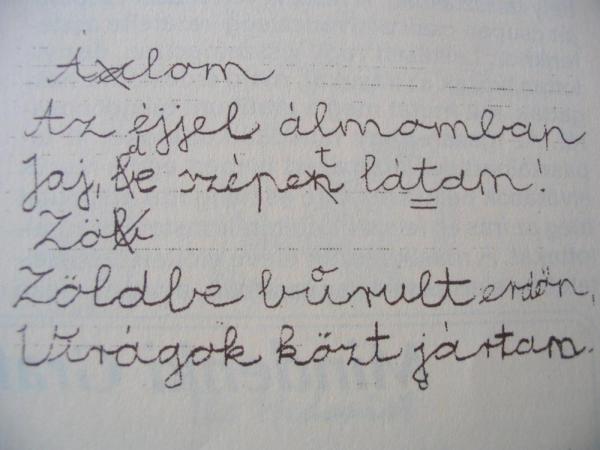 Álom
Az éjjel álmomban
Jaj, de szépet látam!
Zö
Zöldbe bűrult erdőn,
Virágok közt jártam.